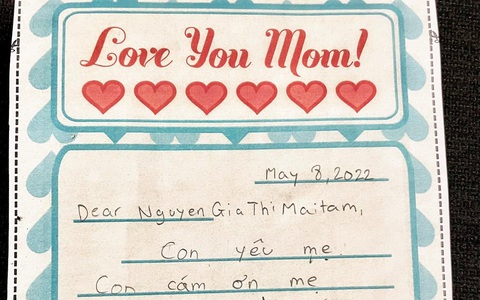 Love You Mom!
May 8, 2022
Dear Nguyen Gia Thi Maitam,
Con yêu mẹ
Con cám ơn mẹ